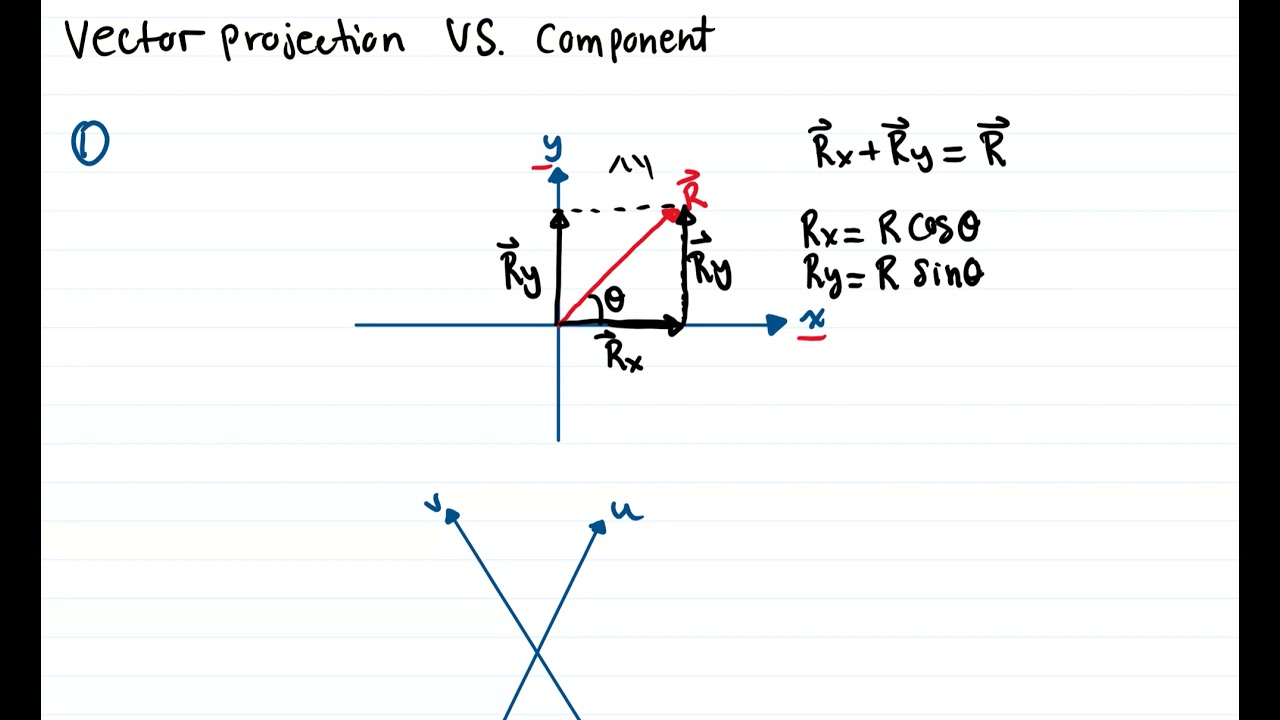 Vector projection VS. Component
①
y
R⃗
R⃗x + R⃗y = R⃗
R⃗y
R⃗y
Rx = R cosθ
Ry = R sinθ
θ
x
R⃗x
v
u